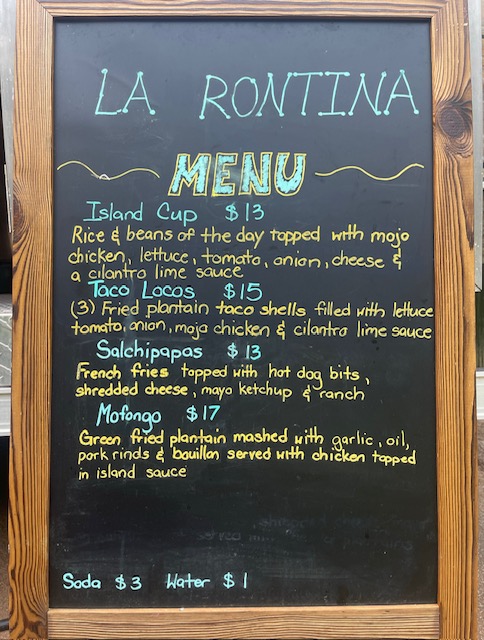 LA RONTINA
MENU
Island Cup $13
Rice & beans of the day topped with mojo
chicken, lettuce, tomato, onion, cheese &
a cilantro lime sauce
Taco Locos $15
(3) Fried plantain taco shells filled with lettuce
tomato, onion, mojo chicken & cilantro lime sauce
Salchipapas $13
French fries topped with hot dog bits,
shredded cheese, mayo ketchup & ranch
Mofongo $17
Green fried plantain mashed with garlic, oil,
pork rinds & bouillon served with chicken topped
in island sauce
Soda $3 Water $1